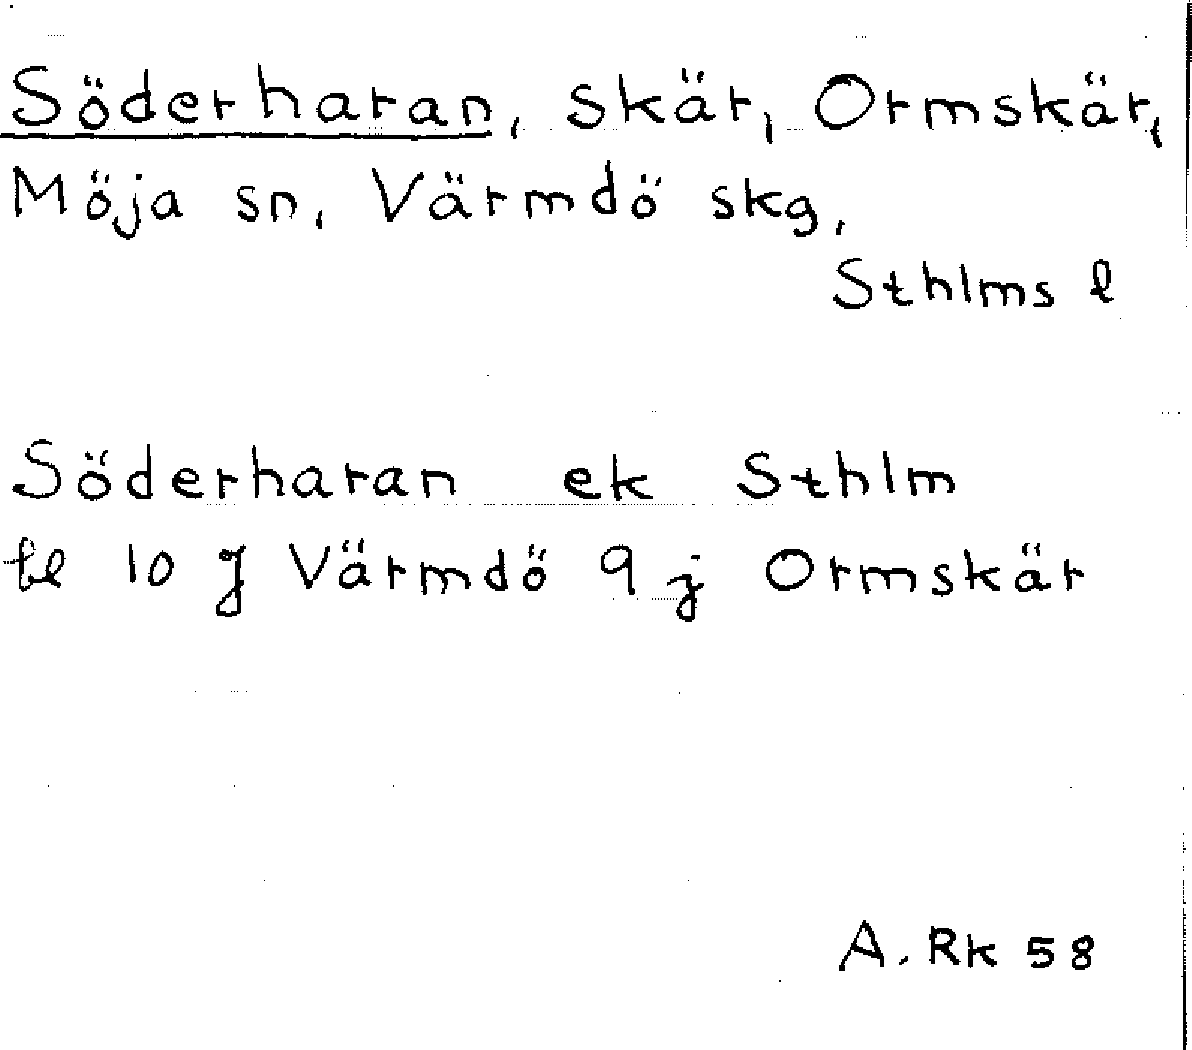 Söderharan, skär, Ormskär,
Möja sn, Värmdö skg,
Sthlms l
Söderharan ek Sthlm
bl 10 J Värmdö 9 j Ormskär
A. Rk 58